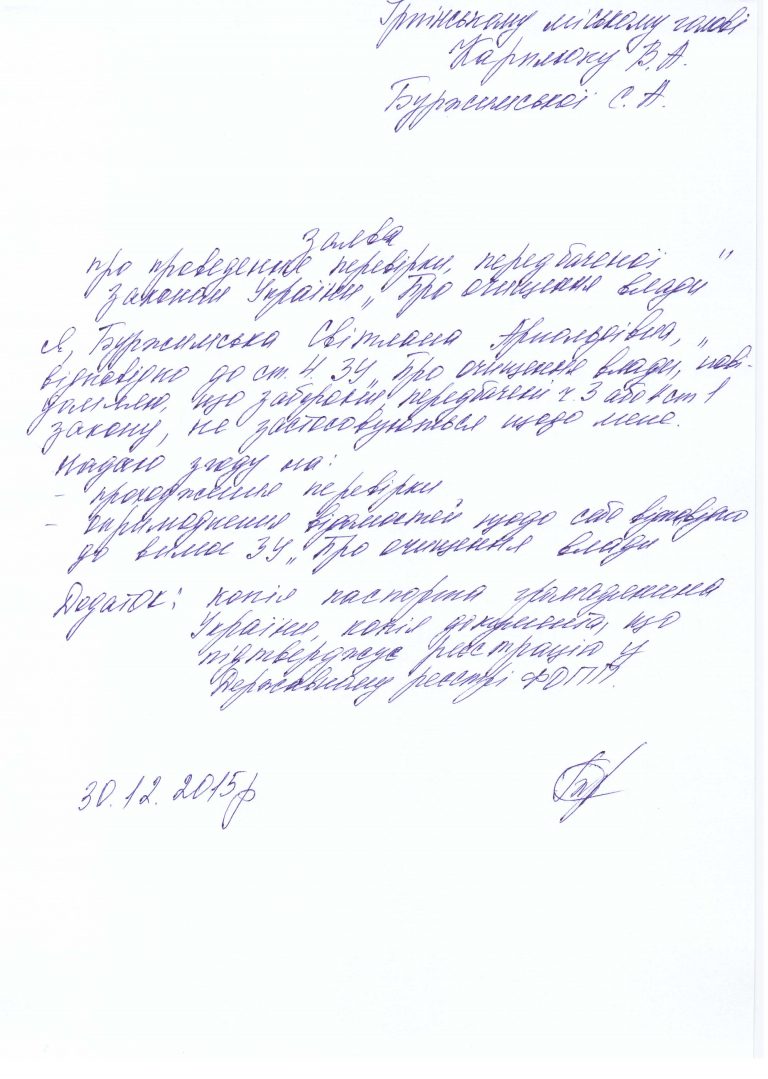 Ірпінському міському голові
Карплюку В.А.
Буржимської С.А.
Заява
про проведення перевірки, передбаченої
Законом України „Про очищення влади"
Я, Буржимська Світлана Арнольдівна,
відповідно до ст. 4 ЗУ „Про очищення влади", пові-
домляю, що заборони передбачені ч. 3 або 4 ст 1
закону, не застосовуються щодо мене.
Надаю згоду на:
- проходження перевірки
- оприлюднення відомостей щодо себе відповідно
до вимог ЗУ „Про очищення влади"
Додаток: копія паспорта громадянина
України, копія документа, що
підтверджує реєстрацію у
Державному реєстрі ФОПП.
30.12.2015р